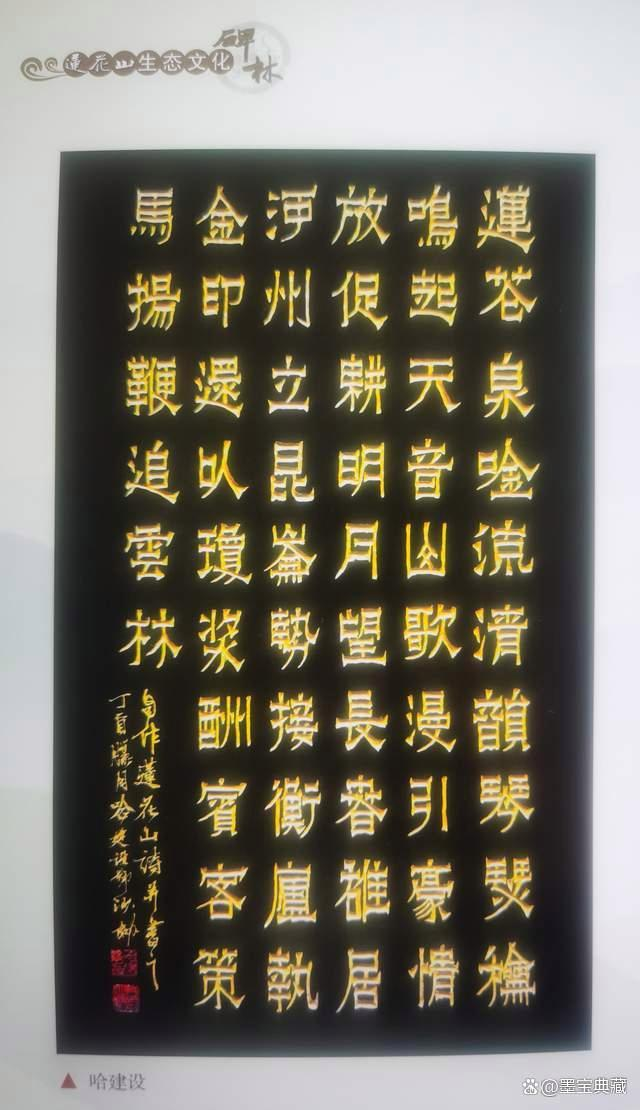 蓮花山生态文化碑林
蓮花泉唫流清韻琴瑟
鳴起天音山歌漫引豪情
放促耕明月望長春雄居
河州立昆崙勢接衡廬執
金印還以瓊漿酬賓客策
馬揚鞭追雲林
自作蓮花山詩并書
丁酉臘月哈建設
▲ 哈建设
@墨宝典藏